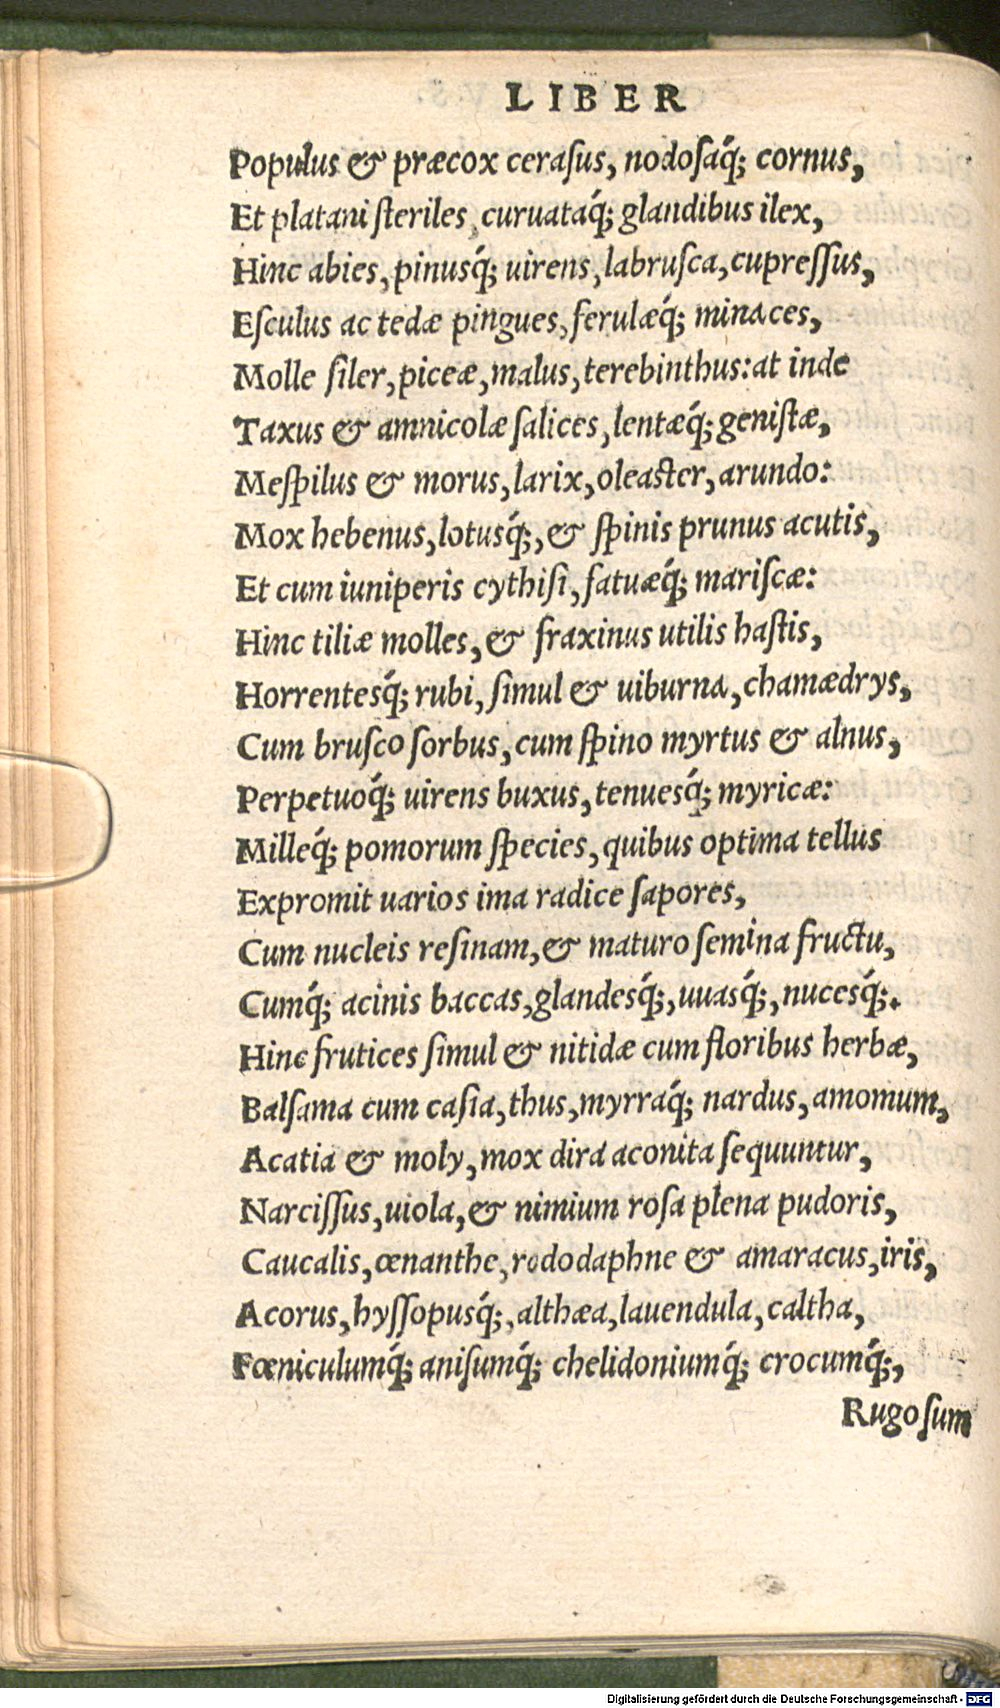 LIBER
Populus & præcox ceraſus, nodoſaq́; cornus,
Et platani ſteriles, curuataq́; glandibus ilex,
Hinc abies, pinusq́; uirens, labruſca, cupreſſus,
Eſculus ac tedæ pingues, ferulæq́; minaces,
Molle ſiler, piceæ, malus, terebinthus: at inde
Taxus & amnicolæ ſalices, lentæq́; geniſtæ,
Meſpilus & morus, larix, oleaſter, arundo:
Mox hebenus, lotusq́;, & ſpinis prunus acutis,
Et cum iuniperis cythiſi, fatuæq́; mariſcæ:
Hinc tiliæ molles, & fraxinus utilis haſtis,
Horrentesq́; rubi, ſimul & uiburna, chamædrys,
Cum bruſco ſorbus, cum ſpino myrtus & alnus,
Perpetuoq́; uirens buxus, tenuesq́; myricæ:
Milleq́; pomorum ſpecies, quibus optima tellus
Expromit uarios ima radice ſapores,
Cum nucleis reſinam, & maturo ſemina fructu,
Cumq́; acinis baccas, glandesq́;, uuasq́;, nucesq́;.
Hinc frutices ſimul & nitidæ cum floribus herbæ,
Balſama cum caſia, thus, myrraq́; nardus, amomum,
Acatia & moly, mox dira aconita ſequuntur,
Narciſſus, uiola, & nimium roſa plena pudoris,
Caucalis, œnanthe, rododaphne & amaracus, iris,
Acorus, hyſſopusq́;, althæa, lauendula, caltha,
Fœniculumq́; aniſumq́; chelidoniumq́; crocumq́;,
Rugoſum
Digitalisierung gefördert durch die Deutsche Forschungsgemeinschaft - DFG